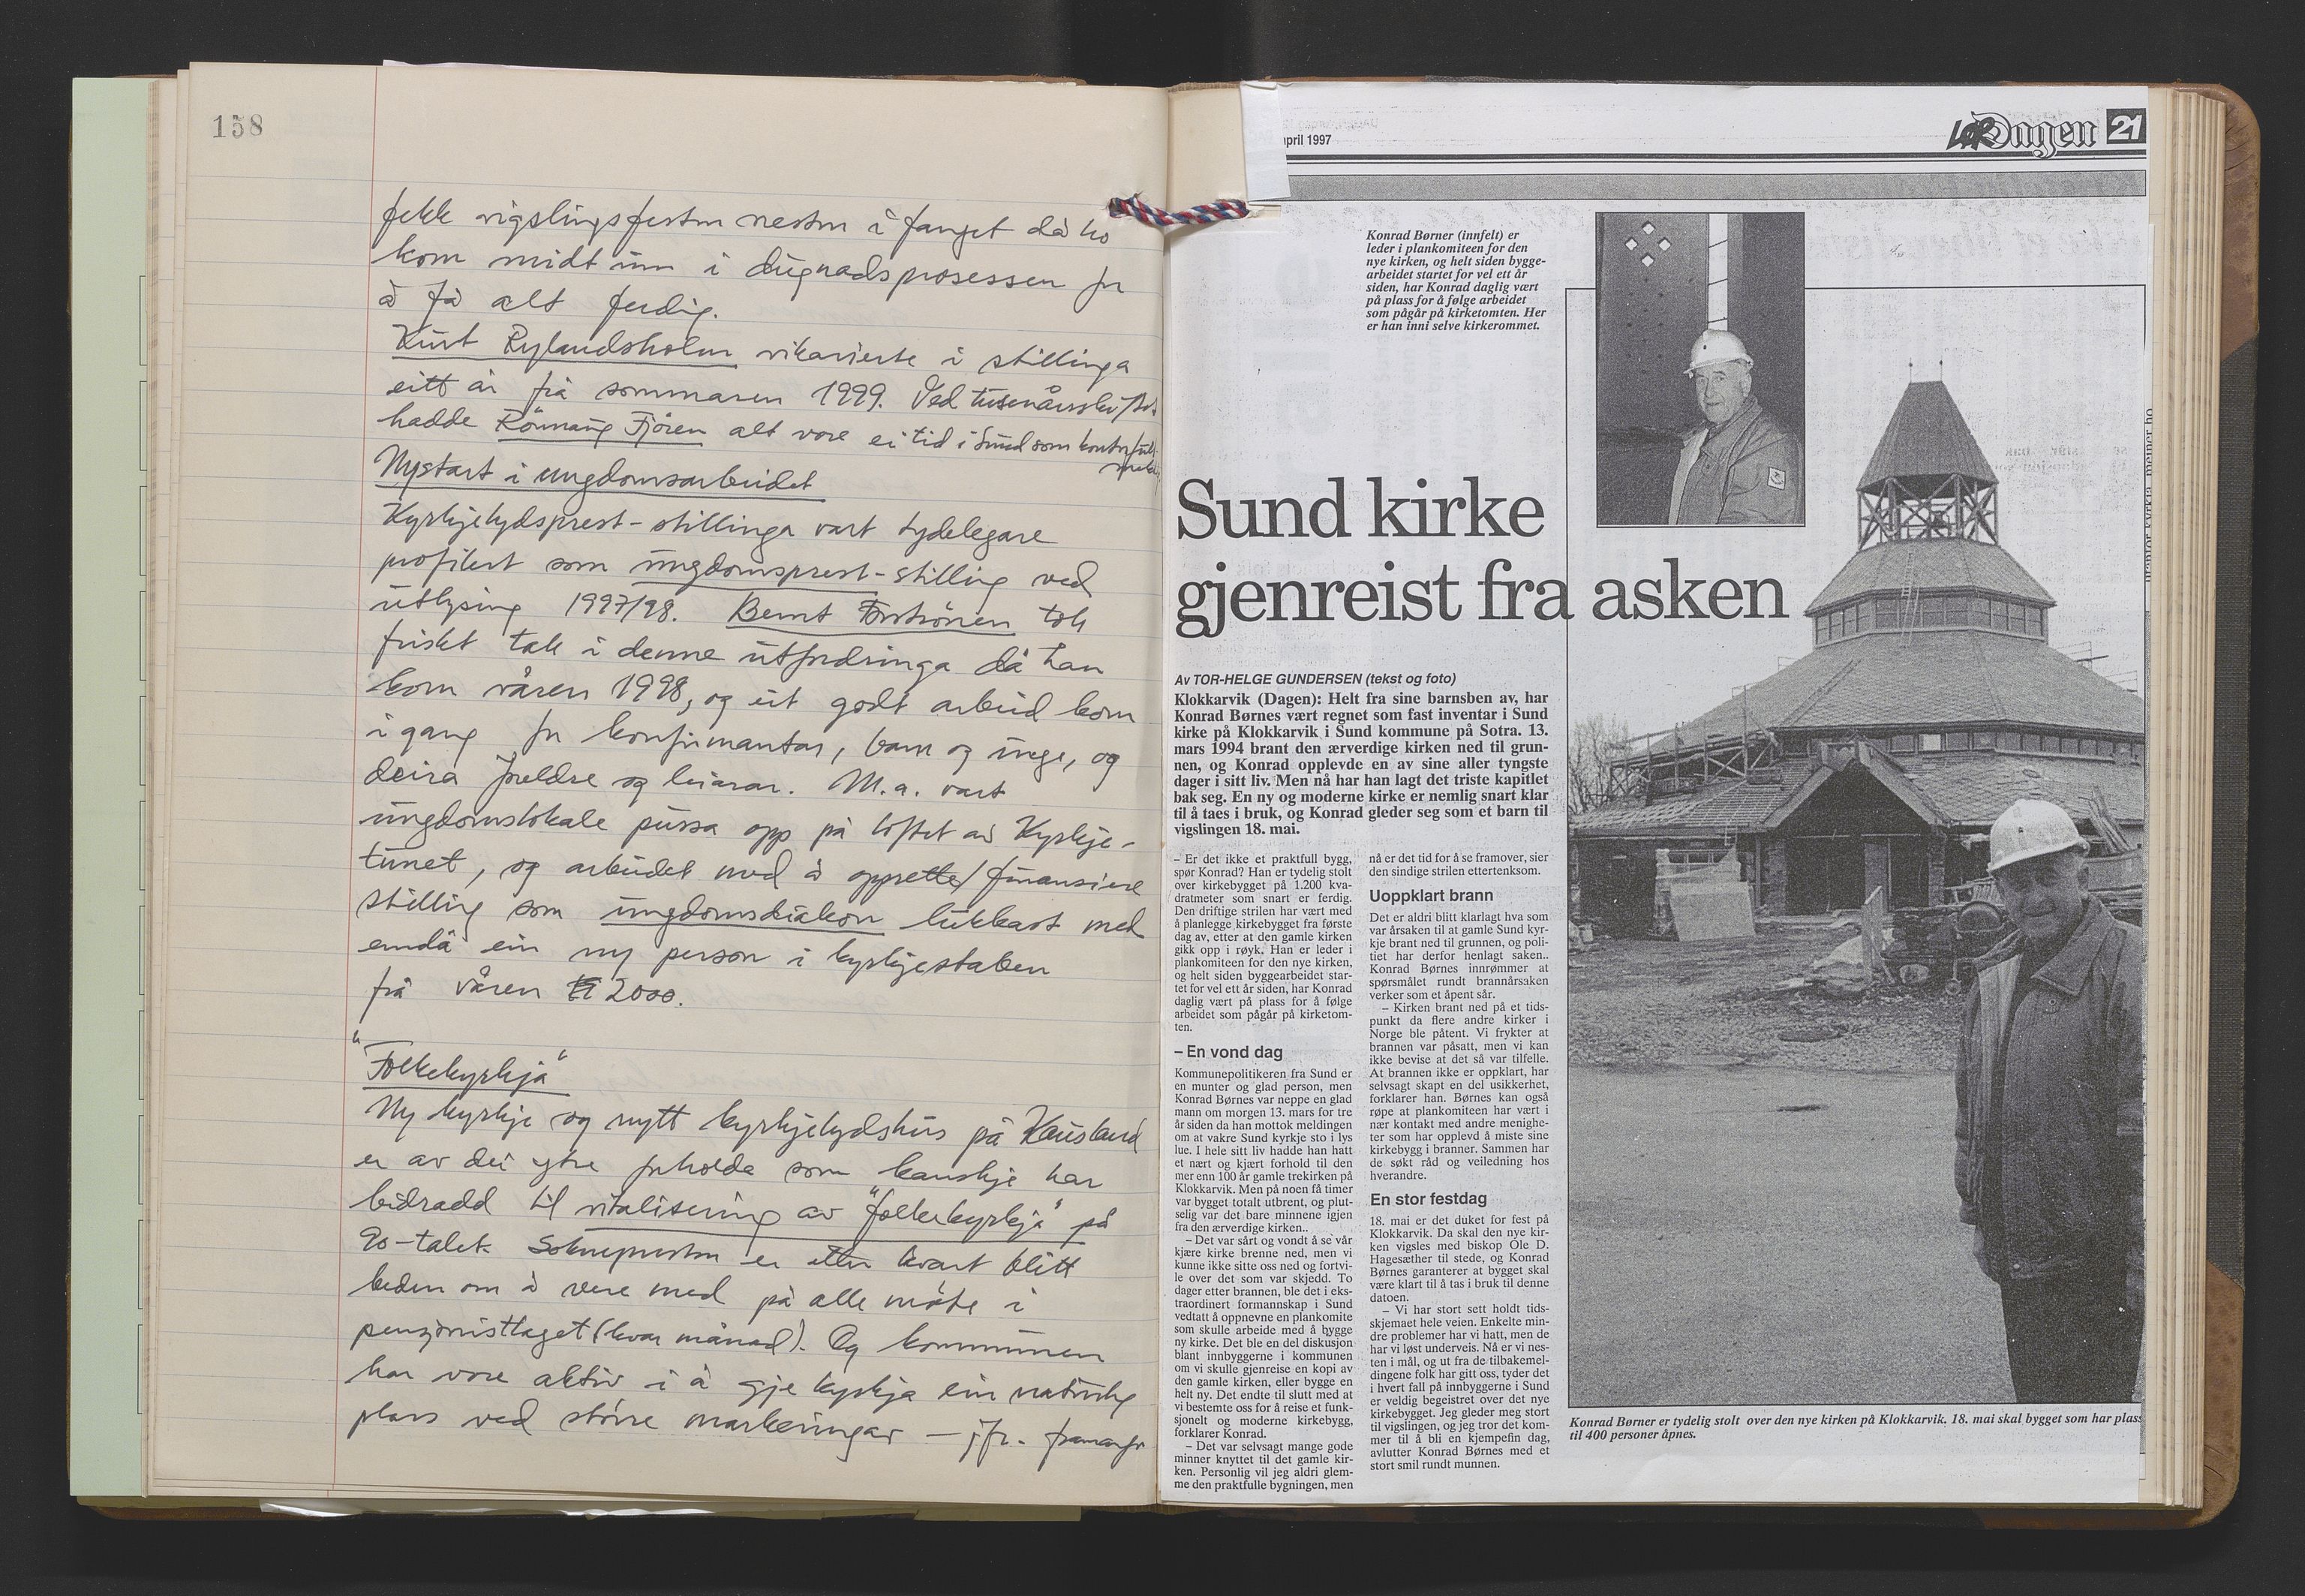 158
fekk vigslingsfesten nesten i fanget då ho
kom midt inn i dugnadsprosessen for
å få alt ferdig.
Kurt Rylandsholm vikarierte i stillinga
eitt år frå sommaren 1999. Ved
hadde Rönnaug Fjören alt vore ei tid i Sund som
Nystart i ungdomsarbeidet
Kyrkjelydsprest-stillinga vart tydelegare
profilert som ungdomsprest-stilling ved
utlysing 1997/98. Bernt tok
friskt tak i denne utfordringa då han
kom våren 1998, og eit godt arbeid kom
i gang for konfirmantar, barn og unge, og
deira foreldre og leiarar. M.a. vart
ungdomslokale pussa opp på loftet av Kyrkje-
tunet, og arbeidet med å opprette/finansiere
stilling som ungdomsdiakon lukkast med
endå ein ny person i kyrkjestaben
frå våren 2000.
"Folkekyrkja"
Ny kyrkje og nytt kyrkjelydshus på Kausland
er av dei ytre forholda som kanskje har
bidradd til vitalisering av "folkekyrkja" på
90-talet. Soknepresten er etter kvart blitt
beden om å vere med på alle møte i
pensjonistlaget (kvar månad). Og kommunen
har vore aktiv i å gje kyrkja ein naturleg
plass ved større markeringar – jfr.
april 1997
LØR Dagen 21
Konrad Børner (innfelt) er
leder i plankomiteen for den
nye kirken, og helt siden bygge-
arbeidet startet for vel ett år
siden, har Konrad daglig vært
på plass for å følge arbeidet
som pågår på kirketomten. Her
er han inni selve kirkerommet.
Sund kirke
gjenreist fra asken
Av TOR-HELGE GUNDERSEN (tekst og foto)
Klokkarvik (Dagen): Helt fra sine barnsben av, har
Konrad Børnes vært regnet som fast inventar i Sund
kirke på Klokkarvik i Sund kommune på Sotra. 13.
mars 1994 brant den ærverdige kirken ned til grun-
nen, og Konrad opplevde en av sine aller tyngste
dager i sitt liv. Men nå har han lagt det triste kapitlet
bak seg. En ny og moderne kirke er nemlig snart klar
til å taes i bruk, og Konrad gleder seg som et barn til
vigslingen 18. mai.
– Er det ikke et praktfull bygg,
spør Konrad? Han er tydelig stolt
over kirkebygget på 1.200 kva-
dratmeter som snart er ferdig.
Den driftige strilen har vært med
å planlegge kirkebygget fra første
dag av, etter at den gamle kirken
gikk opp i røyk. Han er leder i
plankomiteen for den nye kirken,
og helt siden byggearbeidet star-
tet for vel ett år siden, har Konrad
daglig vært på plass for å følge
arbeidet som pågår på kirketom-
ten.
– En vond dag
Kommunepolitikeren fra Sund er
en munter og glad person, men
Konrad Børnes var neppe en glad
mann om morgen 13. mars for tre
år siden da han mottok meldingen
om at vakre Sund kyrkje sto i lys
lue. I hele sitt liv hadde han hatt
et nært og kjært forhold til den
mer enn 100 år gamle trekirken på
Klokkarvik. Men på noen få timer
var bygget totalt utbrent, og plut-
selig var det bare minnene igjen
fra den ærverdige kirken..
– Det var sårt og vondt å se vår
kjære kirke brenne ned, men vi
kunne ikke sitte oss ned og fortvi-
le over det som var skjedd. To
dager etter brannen, ble det i eks-
traordinert formannskap i Sund
vedtatt å oppnevne en plankomite
som skulle arbeide med å bygge
ny kirke. Det ble en del diskusjon
blant innbyggerne i kommunen
om vi skulle gjenreise en kopi av
den gamle kirken, eller bygge en
helt ny. Det endte til slutt med at
vi bestemte oss for å reise et funk-
sjonelt og moderne kirkebygg,
forklarer Konrad.
– Det var selvsagt mange gode
minner knyttet til det gamle kir-
ken. Personlig vil jeg aldri glem-
me den praktfulle bygningen, men
nå er det tid for å se framover, sier
den sindige strilen ettertenksom.
Uoppklart brann
Det er aldri blitt klarlagt hva som
var årsaken til at gamle Sund kyr-
kje brant ned til grunnen, og poli-
tiet har derfor henlagt saken..
Konrad Børnes innrømmer at
spørsmålet rundt brannårsaken
verker som et åpent sår.
– Kirken brant ned på et tids-
punkt da flere andre kirker i
Norge ble påtent. Vi frykter at
brannen var påsatt, men vi kan
ikke bevise at det så var tilfelle.
At brannen ikke er oppklart, har
selvsagt skapt en del usikkerhet,
forklarer han. Børnes kan også
røpe at plankomiteen har vært i
nær kontakt med andre menighe-
ter som har opplevd å miste sine
kirkebygg i branner. Sammen har
de søkt råd og veiledning hos
hverandre.
En stor festdag
18. mai er det duket for fest på
Klokkarvik. Da skal den nye kir-
ken vigsles med biskop Ole D.
Hagesæther til stede, og Konrad
Børnes garanterer at bygget skal
være klart til å tas i bruk til denne
datoen.
– Vi har stort sett holdt tids-
skjemaet hele veien. Enkelte min-
dre problemer har vi hatt, men de
har vi løst underveis. Nå er vi nes-
ten i mål, og ut fra de tilbakemel-
dingene folk har gitt oss, tyder det
i hvert fall på innbyggerne i Sund
er veldig begeistret over det nye
kirkebygget. Jeg gleder meg stort
til vigslingen, og jeg tror det kom-
mer til å bli en kjempefin dag,
avlutter Konrad Børnes med et
stort smil rundt munnen.
Konrad Børner er tydelig stolt over den nye kirken på Klokkarvik. 18. mai skal bygget som har plass
til 400 personer åpnes.